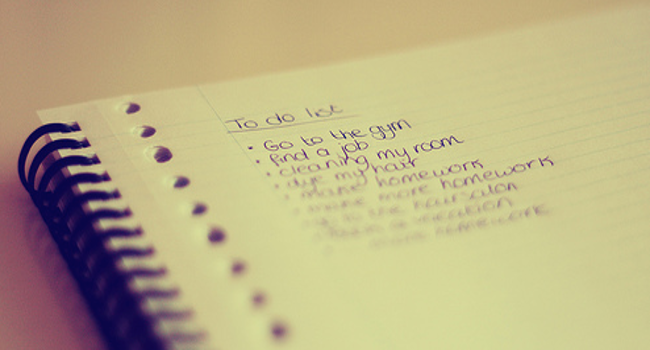 To do list
• Go to the gym
• find a job
• cleaning my room
• dye my hair
• make homework
• make more homework
• go to the hairsalon
more homework